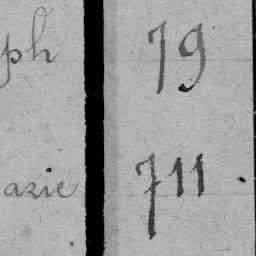 ph 79
arie 711.